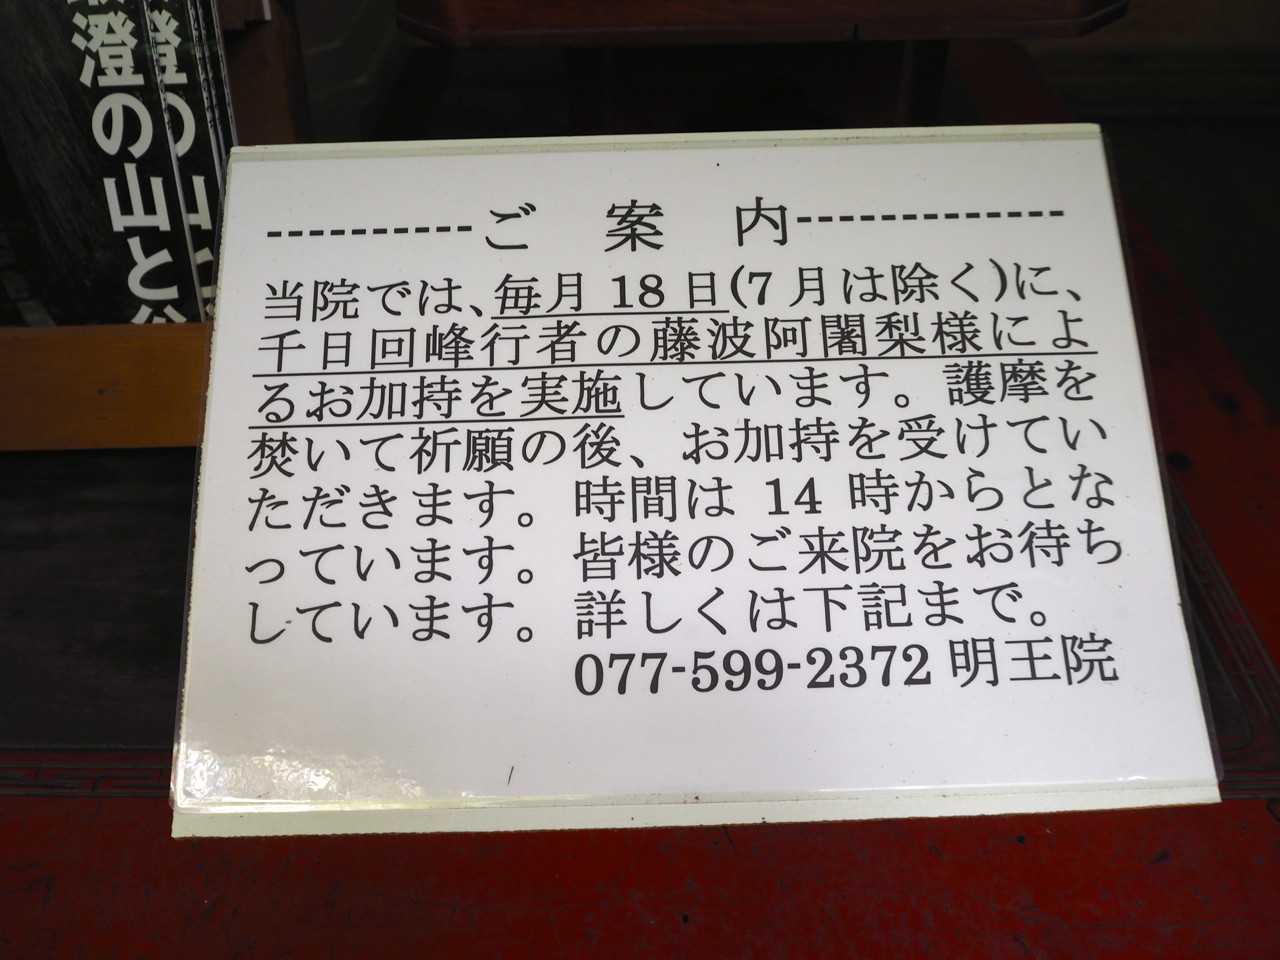 ----------ご　案　内-------------
当院では、毎月 18 日(7 月は除く)に、
千日回峰行者の藤波阿闍梨様によ
るお加持を実施しています。護摩を
焚いて祈願の後、お加持を受けてい
ただきます。時間は 14 時からとな
っています。皆様のご来院をお待ち
しています。詳しくは下記まで。
077-599-2372 明王院
澄の山と